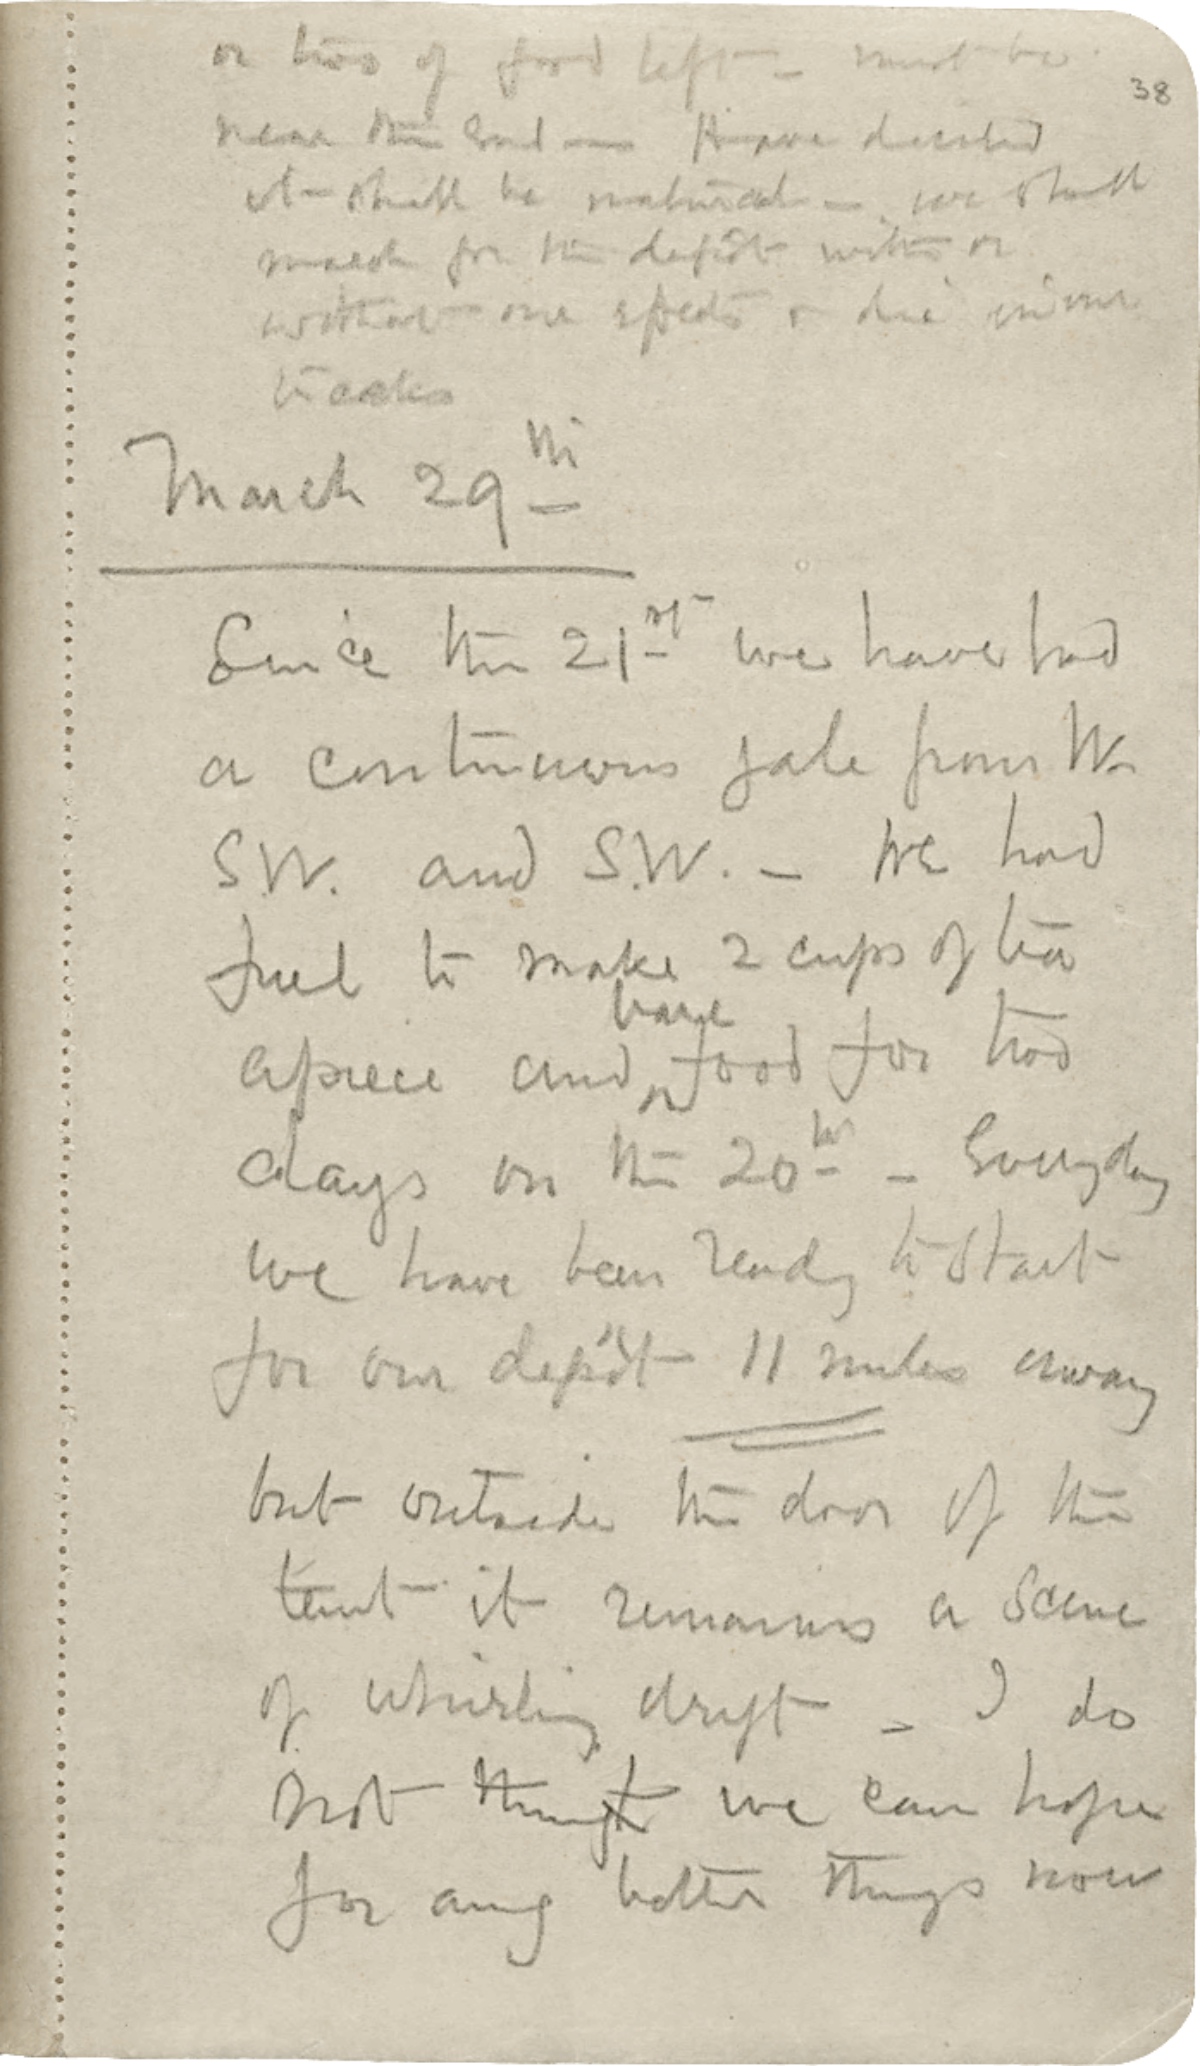 or two of food left – must be
38
near the end – Have decided
it shall be natural – we shall
march for the depôt with or
without our effects & die in our
tracks
March 29th
Since the 21st we have had
a continuous gale from W.
S.W. and S.W. – We had
fuel to make 2 cups of tea
bare
apiece and food for two
days on the 20th – Everyday
we have been ready to start
for our depôt 11 miles away
but outside the door of the
tent it remains a scene
of whirling drift – I do
not think we can hope
for any better things now